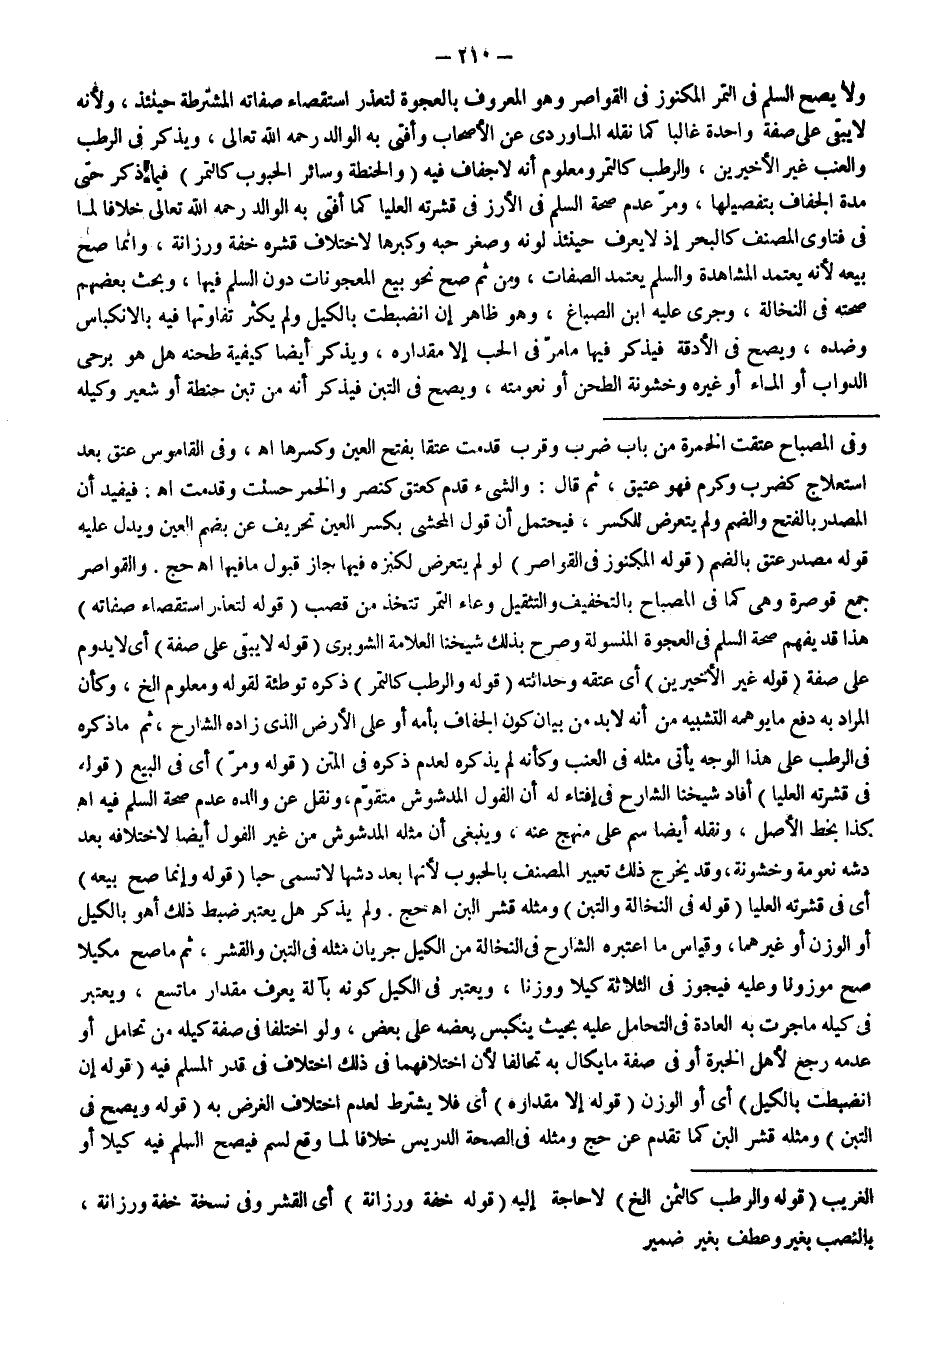 – ٢١٠ –
ولا يصح السلم فى التمر المكنوز فى القواصر وهو المعروف بالعجوة لتعذر استقصاء صفاته المشترطة حينئذ ، ولأنه
لايبقى على صفة واحدة غالبا كما نقله الماوردى عن الأصحاب وأفتى به الوالد رحمه الله تعالى ، ويذكر فى الرطب
والعنب غير الأخيرين ، والرطب كالتمر ومعلوم أنه لاجفاف فيه ( والحنطة وسائر الحبوب كالتمر ) فيما ذكر حتى
مدة الجفاف بتفصيلها ، ومرّ عدم صحة السلم فى الأرز فى قشرته العليا كما أفتى به الوالد رحمه الله تعالى خلافا لما
فى فتاوى المصنف كالبحر إذ لايعرف حينئذ لونه وصغر حبه وكبرها لاختلاف قشره خفة ورزانة ، وانما صح
بيعه لأنه يعتمد المشاهدة والسلم يعتمد الصفات ، ومن ثم صح نحو بيع المعجونات دون السلم فيها ، وبحث بعضهم
صحته فى النخالة ، وجرى عليه ابن الصباغ ، وهو ظاهر إن انضبطت بالكيل ولم يكثر تفاوتها فيه بالانكباس
وضده ، ويصح فى الأدقة فيذكر فيها مامرّ فى الحب إلا مقداره ، ويذكر أيضا كيفية طحنه هل هو برحى
الدواب أو الماء أو غيره وخشونة الطحن أو نعومته ، ويصح فى التبن فيذكر أنه من تبن حنطة أو شعير وكيله
وفى المصباح عتقت الخمرة من باب ضرب وقرب قدمت عتقا بفتح العين وكسرها اه ، وفى القاموس عتق بعد
استعلاج كضرب وكرم فهو عتيق ، ثم قال : والشىء قدم كعتق كنصر والخمر حسنت وقدمت اه : فيفيد أن
المصدر بالفتح والضم ولم يتعرض للكسر ، فيحتمل أن قول المحشى بكسر العين تحريف عن بضم العين ويدل عليه
قوله مصدر عتق بالضم ( قوله المكنوز فى القواصر ) لو لم يتعرض لكنزه فيها جاز قبول مافيها اه حج . والقواصر
جمع قوصرة وهى كما فى المصباح بالتخفيف والتثقيل وعاء التمر تتخذ من قصب ( قوله لتعذر استقصاء صفاته )
هذا قد يفهم صحة السلم فى العجوة المنسولة وصرح بذلك شيخنا العلامة الشوبرى ( قوله لايبقى على صفة ) أى لايدوم
على صفة ( قوله غير الأخيرين ) أى عتقه وحداثته ( قوله والرطب كالتمر ) ذكره توطئة لقوله ومعلوم الخ ، وكأن
المراد به دفع مايوهمه التشبيه من أنه لابد من بيان كون الجفاف بأمه أو على الأرض الذى زاده الشارح ، ثم ماذكره
فى الرطب على هذا الوجه يأتى مثله فى العنب وكأنه لم يذكره لعدم ذكره فى المتن ( قوله ومرّ ) أى فى البيع ( قوله
فى قشرته العليا ) أفاد شيخنا الشارح فى إفتاء له أن الفول المدشوش متقوّم ، ونقل عن والده عدم صحة السلم فيه اه
كذا بخط الأصل ، ونقله أيضا سم على منهج عنه ، وينبغى أن مثله المدشوش من غير الفول أيضا لاختلافه بعد
دشه نعومة وخشونة ، وقد يخرج ذلك تعبير المصنف بالحبوب لأنها بعد دشها لاتسمى حبا ( قوله وإنما صح بيعه )
أى فى قشرته العليا ( قوله فى النخالة والتبن ) ومثله قشر البن اه حج . ولم يذكر هل يعتبر ضبط ذلك أهو بالكيل
أو الوزن أو غيرهما ، وقياس ما اعتبره الشارح فى النخالة من الكيل جريان مثله فى التبن والقشر ، ثم ماصح مكيلا
صح موزونا وعليه فيجوز فى الثلاثة كيلا ووزنا ، ويعتبر فى الكيل كونه بآلة يعرف مقدار ماتسع ، ويعتبر
فى كيله ماجرت به العادة فى التحامل عليه بحيث ينكبس بعضه على بعض ، ولو اختلفا فى صفة كيله من تحامل أو
عدمه رجع لأهل الخبرة أو فى صفة مايكال به تحالفا لأن اختلافهما فى ذلك اختلاف فى قدر المسلم فيه ( قوله إن
انضبطت بالكيل ) أى أو الوزن ( قوله إلا مقداره ) أى فلا يشترط لعدم اختلاف الغرض به ( قوله ويصح فى
التبن ) ومثله قشر البن كما تقدم عن حج ومثله فى الصحة الدريس خلافا لما وقع لسم فيصح السلم فيه كيلا أو
الغريب ( قوله والرطب كالثمن الخ ) لاحاجة إليه ( قوله خفة ورزانة ) أى القشر وفى نسخة خفة ورزانة ،
بالنصب بغير وعطف بغير ضمير